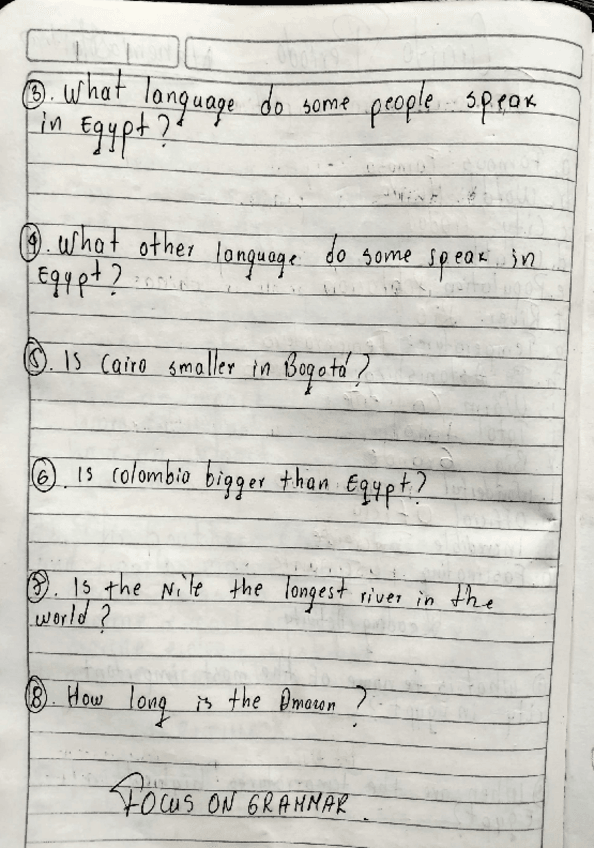 ③. What language do some people speak
in Egypt?
④. What other language do some speak in
Egypt?
⑤. Is Cairo smaller in Bogotá?
⑥. Is Colombia bigger than Egypt?
⑦. Is the Nile the longest river in the
world?
⑧. How long is the Amazon?
FOCUS ON GRAMMAR.